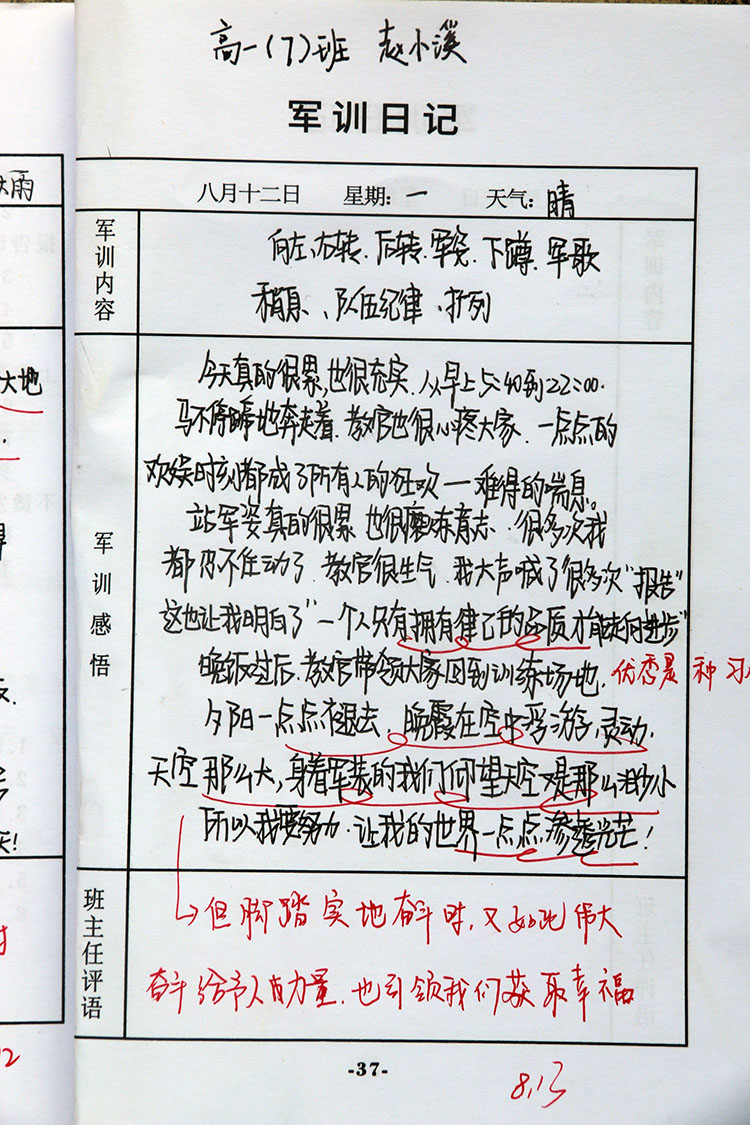 高一(7)班 赵小溪
军训日记
八月十二日 星期:一 天气:晴
军训内容
向左、右转、后转、军姿、下蹲、军歌
稍息、、队伍纪律、报列
军训感悟
今天真的很累,也很充实,从早上5:40到22:00.
马不停蹄地奔走着.教官也很心疼大家.一点点的
欢娱时刻都成了所有人的狂欢一难得的喘息。
站军姿真的很累 也很磨炼意志.很多次我
都忍不住动了.教官很生气.我大声喊了很多次"报告"
这也让我明白了"一个人只有拥有律己的品质才能走向进步"
晚饭过后.教官带领大家回到训练场地.
优秀是种习
夕阳一点点褪去.晚霞在空中浮游,灵动.
天空那么大,身着军装的我们仰望天空又是那么渺小
所以我要努力.让我的世界一点点渗透光芒!
班主任评语
但脚踏实地奋斗时,又如此伟大
奋斗给予人有力量.也引领我们获取幸福
-37-
8.13
雨
大地